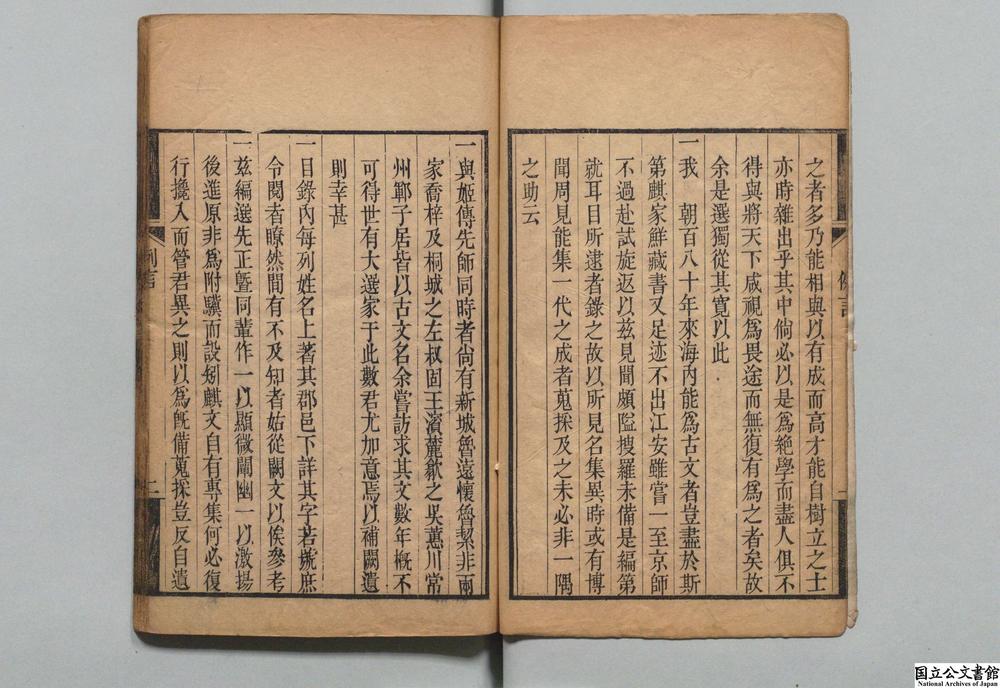 之者多乃能相與以有成而高才能自樹立之士
亦時雜出乎其中倘必以是爲絶學而盡人俱不
得與將天下咸視爲畏途而無復有爲之者矣故
余是選獨從其寬以此
一我　朝百八十年來海内能爲古文者豈盡於斯
第麒家鮮藏書又足迹不出江安雖嘗一至京師
不過赴試旋返以兹見聞頗隘搜羅未備是編第
就耳目所逮者錄之故以所見名集異時或有博
聞周見能集一代之成者蒐採及之未必非一隅
之助云
例言
二
一與姬傳先師同時者尚有新城魯遠懷魯絜非兩
家喬梓及桐城之左叔固王濱麓歙之吳蕙川常
州鄆子居皆以古文名余嘗訪求其文數年槪不
可得世有大選家于此數君尤加意焉以補闕遺
則幸甚
一目錄内每列姓名上著其郡邑下詳其字若號庶
令閱者瞭然間有不及知者姑從闕文以俟參考
一兹編選先正曁同輩作一以顯微闡幽一以激揚
後進原非爲附驥而設矧麒文自有專集何必復
行攙入而管君異之則以爲旣備蒐採豈反自遺
国立公文書館
National Archives of Japan